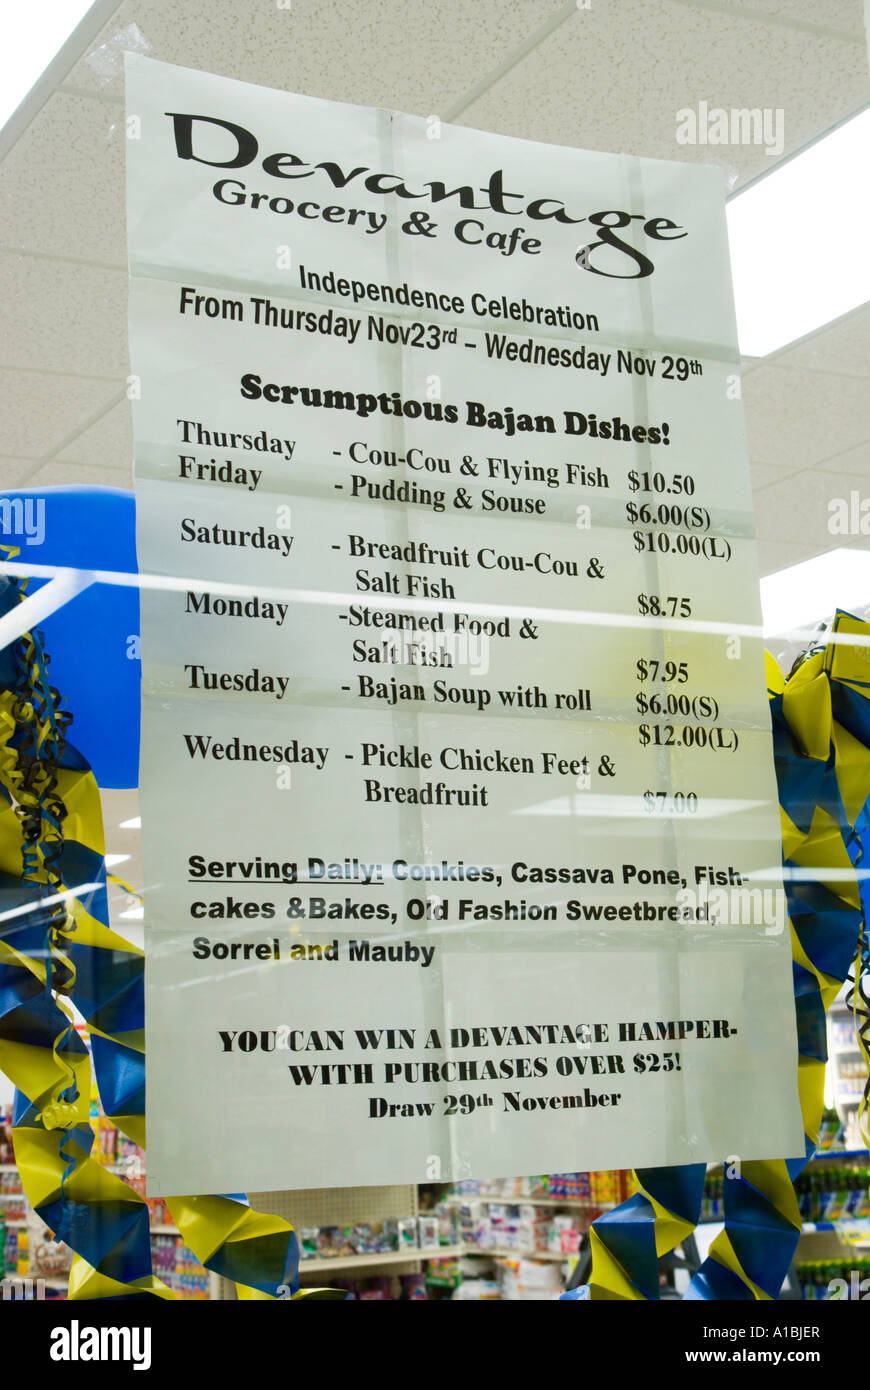 Devantage
Grocery & Cafe
Independence Celebration
From Thursday Nov23rd – Wednesday Nov 29th
Scrumptious Bajan Dishes!
Thursday - Cou-Cou & Flying Fish $10.50
Friday - Pudding & Souse $6.00(S)
$10.00(L)
Saturday - Breadfruit Cou-Cou &
Salt Fish $8.75
Monday -Steamed Food &
Salt Fish $7.95
Tuesday - Bajan Soup with roll $6.00(S)
$12.00(L)
Wednesday - Pickle Chicken Feet &
Breadfruit $7.00
Serving Daily: Conkies, Cassava Pone, Fish-
cakes &Bakes, Old Fashion Sweetbread,
Sorrel and Mauby
YOU CAN WIN A DEVANTAGE HAMPER-
WITH PURCHASES OVER $25!
Draw 29th November
alamy
alamy
Image ID: A1BJER
www.alamy.com